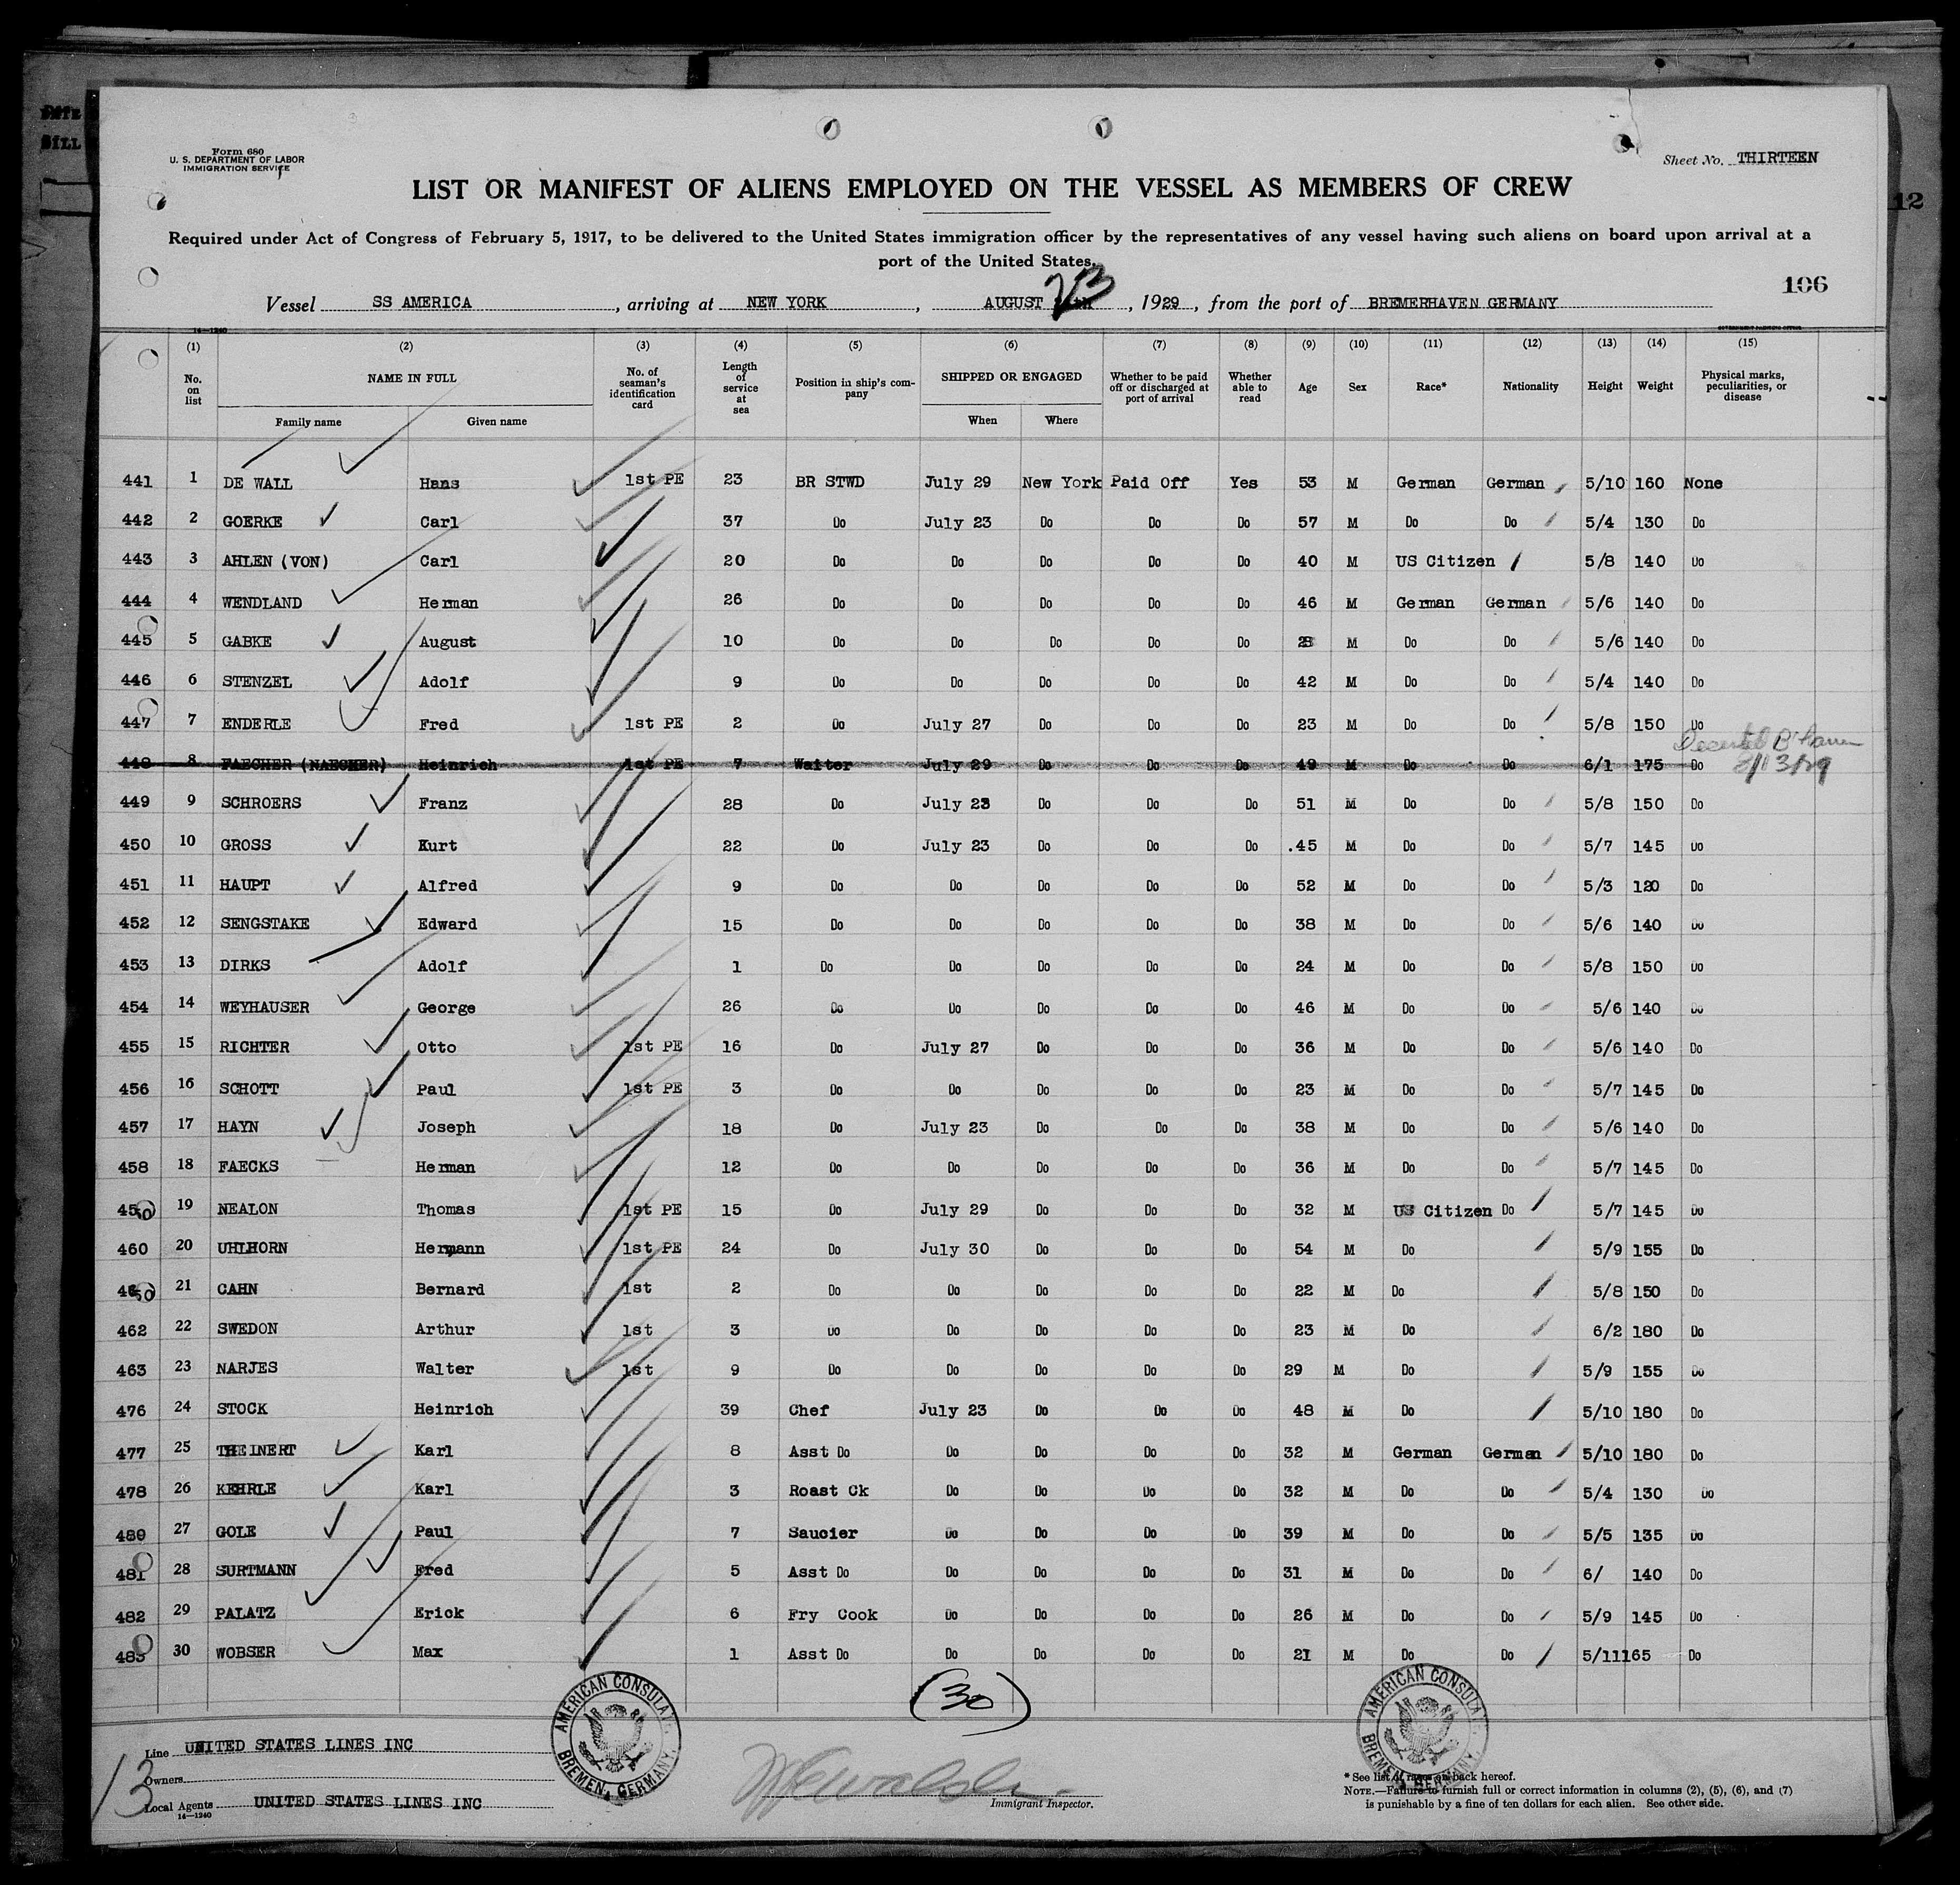 DATE
BILL
12
Form 680
U. S. DEPARTMENT OF LABOR
IMMIGRATION SERVICE
Sheet No. THIRTEEN
LIST OR MANIFEST OF ALIENS EMPLOYED ON THE VESSEL AS MEMBERS OF CREW
Required under Act of Congress of February 5, 1917, to be delivered to the United States immigration officer by the representatives of any vessel having such aliens on board upon arrival at a
port of the United States.
106
Vessel SS AMERICA, arriving at NEW YORK, AUGUST 23, 1929, from the port of BREMERHAVEN GERMANY
14—1240
(1) (2) (3) (4) (5) (6) (7) (8) (9) (10) (11) (12) (13) (14) (15)
No. on list NAME IN FULL No. of seaman's identification card Length of service at sea Position in ship's company SHIPPED OR ENGAGED Whether to be paid off or discharged at port of arrival Whether able to read Age Sex Race* Nationality Height Weight Physical marks, peculiarities, or disease
Family name Given name When Where
441 1 DE WALL Hans 1st PE 23 BR STWD July 29 New York Paid Off Yes 53 M German German 5/10 160 None
442 2 GOERKE Carl 37 Do July 23 Do Do Do 57 M Do Do 5/4 130 Do
443 3 AHLEN (VON) Carl 20 Do Do Do Do Do 40 M US Citizen 5/8 140 Do
444 4 WENDLAND Herman 26 Do Do Do Do Do 46 M German German 5/6 140 Do
445 5 GABKE August 10 Do Do Do Do Do 28 M Do Do 5/6 140 Do
446 6 STENZEL Adolf 9 Do Do Do Do Do 42 M Do Do 5/4 140 Do
447 7 ENDERLE Fred 1st PE 2 Do July 27 Do Do Do 23 M Do Do 5/8 150 Do
448 8 FAECHER (NAECHER) Heinrich 1st PE 7 Waiter July 29 Do Do Do 49 M Do Do 6/1 175 Do Deserted B'haven 8/13/29
449 9 SCHROERS Franz 28 Do July 23 Do Do Do 51 M Do Do 5/8 150 Do
450 10 GROSS Kurt 22 Do July 23 Do Do Do .45 M Do Do 5/7 145 Do
451 11 HAUPT Alfred 9 Do Do Do Do Do 52 M Do Do 5/3 120 Do
452 12 SENGSTAKE Edward 15 Do Do Do Do Do 38 M Do Do 5/6 140 Do
453 13 DIRKS Adolf 1 Do Do Do Do Do 24 M Do Do 5/8 150 Do
454 14 WEYHAUSER George 26 Do Do Do Do Do 46 M Do Do 5/6 140 Do
455 15 RICHTER Otto 1st PE 16 Do July 27 Do Do Do 36 M Do Do 5/6 140 Do
456 16 SCHOTT Paul 1st PE 3 Do Do Do Do Do 23 M Do Do 5/7 145 Do
457 17 HAYN Joseph 18 Do July 23 Do Do Do 38 M Do Do 5/6 140 Do
458 18 FAECKS Herman 12 Do Do Do Do Do 36 M Do Do 5/7 145 Do
19 NEALON Thomas 1st PE 15 Do July 29 Do Do Do 32 M US Citizen Do 5/7 145 Do
460 20 UHLHORN Hermann 1st PE 24 Do July 30 Do Do Do 54 M Do 5/9 155 Do
21 CAHN Bernard 1st 2 Do Do Do Do Do 22 M Do 5/8 150 Do
462 22 SWEDON Arthur 1st 3 Do Do Do Do Do 23 M Do 6/2 180 Do
463 23 NARJES Walter 1st 9 Do Do Do Do Do 29 M Do 5/9 155 Do
476 24 STOCK Heinrich 39 Chef July 23 Do Do Do 48 M Do 5/10 180 Do
477 25 THEINERT Karl 8 Asst Do Do Do Do Do 32 M German German 5/10 180 Do
478 26 KEHRLE Karl 3 Roast Ck Do Do Do Do 32 M Do Do 5/4 130 Do
480 27 GOLE Paul 7 Saucier Do Do Do Do 39 M Do Do 5/5 135 Do
481 28 SURTMANN Fred 5 Asst Do Do Do Do Do 31 M Do Do 6/ 140 Do
482 29 PALATZ Erick 6 Fry Cook Do Do Do Do 26 M Do Do 5/9 145 Do
483 30 WOBSER Max 1 Asst Do Do Do Do Do 21 M Do Do 5/11 165 Do
(30)
AMERICAN CONSULATE, BREMEN, GERMANY.
AMERICAN CONSULATE, BREMEN, GERMANY.
13
Line UNITED STATES LINES INC
Owners
Local Agents UNITED STATES LINES INC
14—1240
Immigrant Inspector.
* See list of races on back hereof.
NOTE.—Failure to furnish full or correct information in columns (2), (5), (6), and (7)
is punishable by a fine of ten dollars for each alien. See other side.